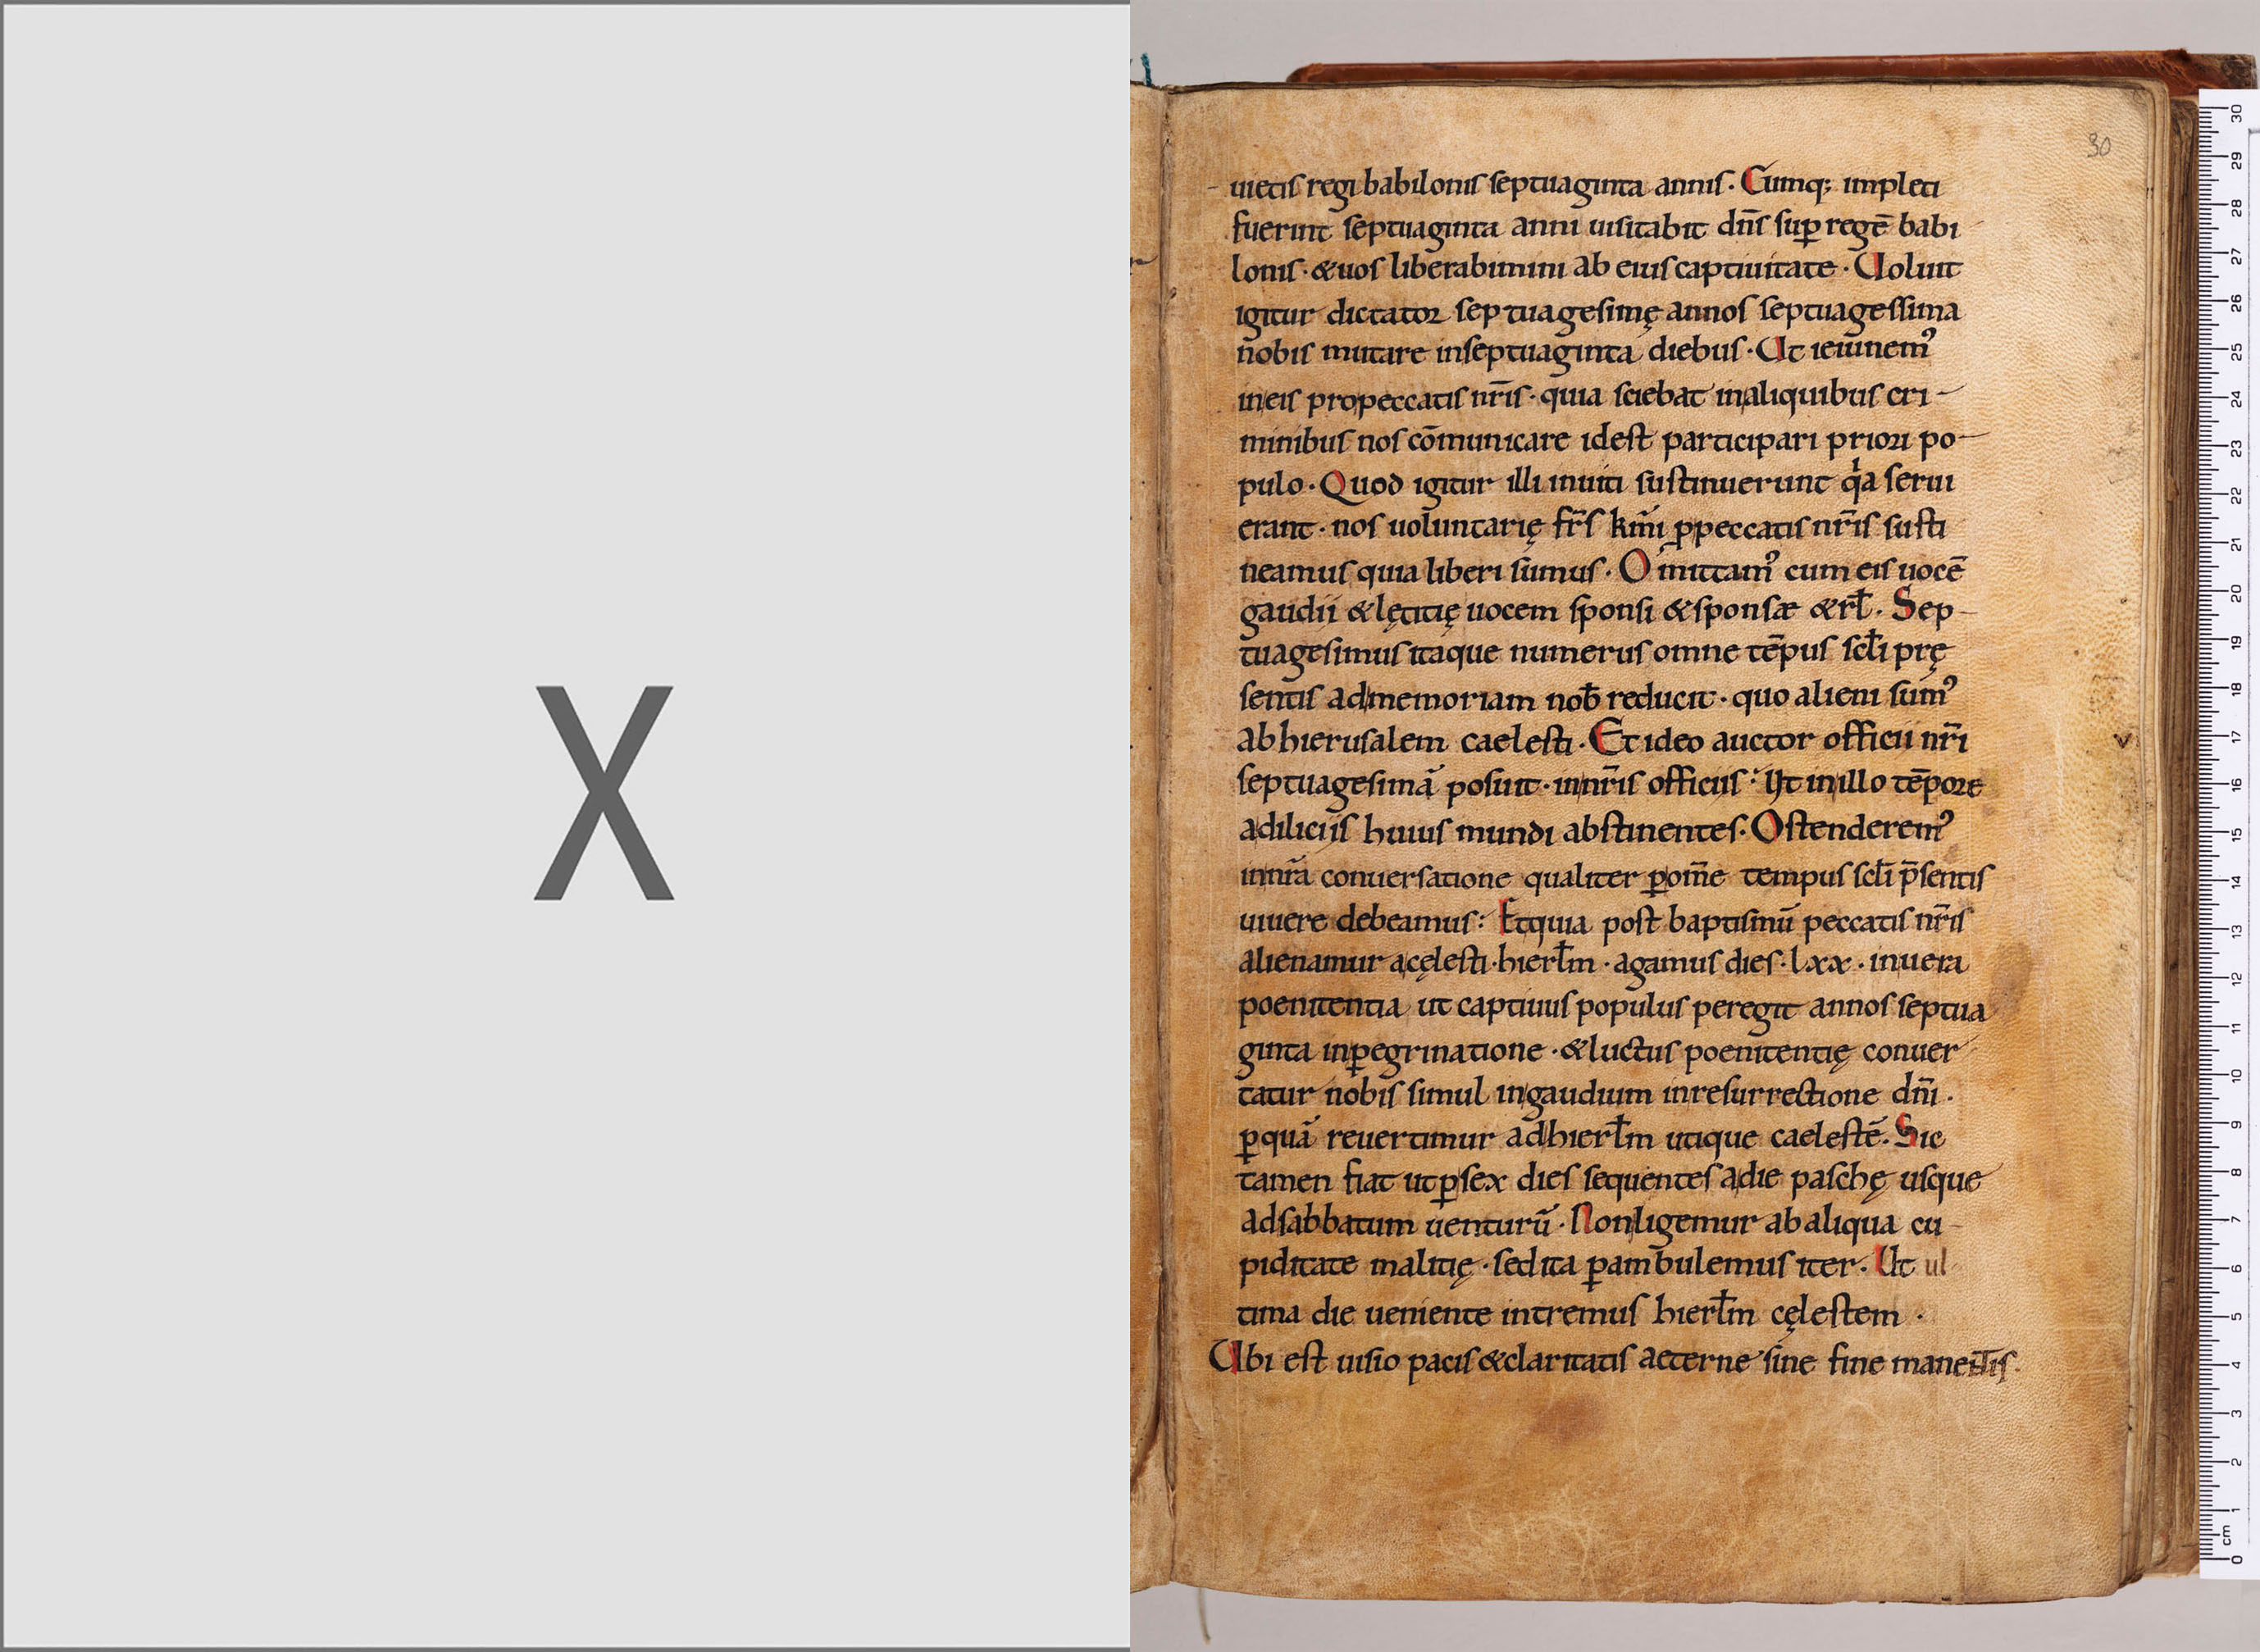 X
30
uietis regi babilonis septuaginta annis. Cumq; impleti
fuerint septuaginta anni uisitabit dn̄s sup̱ regē babi
lonis· &uos liberabimini ab eius captiuitate· Uoluit
igitur dictator septuagesimę annos septuagessima
nobis mutare inseptuaginta diebus· Ut ieiunem᾿
ineis propeccatis nr̄is· quia sciebat inaliquibus cri-
minibus nos cōmunicare idest participari priori po-
pulo. Quod igitur illi inuiti sustinuerunt qͥa serui
erant· nos uoluntarię fr̄s km̄i p̱peccatis nr̄is susti
neamus quia liberi sumus· Omittam᾿ cum eis uocē
gaudii &lętitię uocem sponsi &sponsæ &rł. Sep-
tuagesimus itaque numerus omne tēpus scłi prę
sentis admemoriam nob̄ reducit· quo alieni sum᾿
abhierusalem caelesti· Et ideo auctor officii nr̄i
septuagesimā posuit· innr̄is officiis: Ut inillo tēpore
adiliciis huius mundi abstinentes· Ostenderem᾿
innr̄a conuersatione qualiter p̱om̄e tempus scłi p̄sentis
uiuere debeamus: Etquia post baptismū peccatis nr̄is
alienamur acęlesti·hierłm· agamus dies·lxx· inuera
poenitentia ut captiuus populus peregit annos septua
ginta inp̱egrinatione· &luctus poenitentię conuer
tatur nobis simul ingaudium inresurrectione dn̄i·
p̱quā reuertimur adhierłm utique caelestē. Sic
tamen fiat utp̱sex dies sequentes adie paschę usque
adsabbatum uenturū· Nonligemur abaliqua cu-
piditate malitię· sedita p̱ambulemus iter. Ut ul
tima die ueniente intremus hierłm cęlestem·
Ubi est uisio pacis &claritatis aeterne sine fine manentis.
0 cm 1 2 3 4 5 6 7 8 9 10 11 12 13 14 15 16 17 18 19 20 21 22 23 24 25 26 27 28 29 30